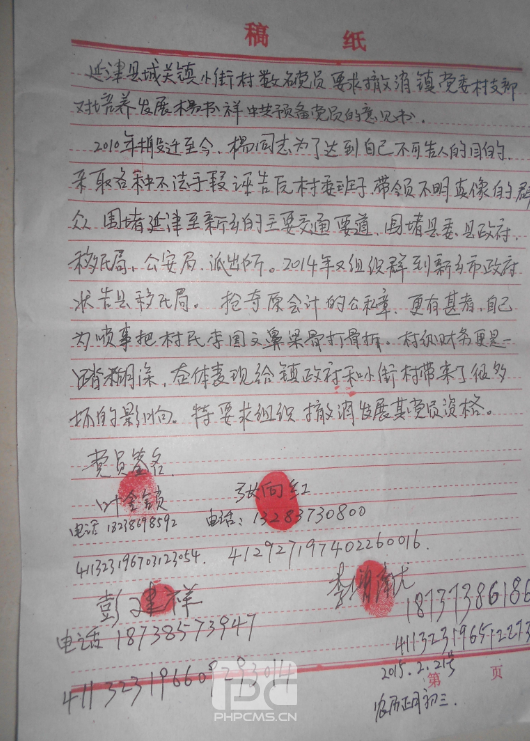 稿 纸
延津县城关镇小街村数名党员要求撤消镇党委村支部
对培养发展杨书祥中共预备党员的意见书.
2010年搬迁至今、杨同志为了达到自己不可告人的目的,
采取各种不法手段诬告反村委班子,带领不明真像的群
众 围堵延津至新乡的主要交通要道、围堵县委、县政府,
移民局、公安局、派出所。2014年又组织群到新乡市政府
状告县移民局。抢夺原会计的公私章,更有甚者,自己
为琐事把村民李国文鼻梁骨打骨折。村级财务更是一
踏糊涂,在体表现给镇政府和小街村带来了很多
坏的影响。特要求组织撤消发展其党员资格。
党员签名
叶金锁 张向红
电话 13218698592 电话:13283730800
411323196703123054. 412927197402260016.
彭建祥
电话 18738573947 1813738618
41132319651221
2015.2.21号
第 页
农历正月初三.
PHPCMS.CN